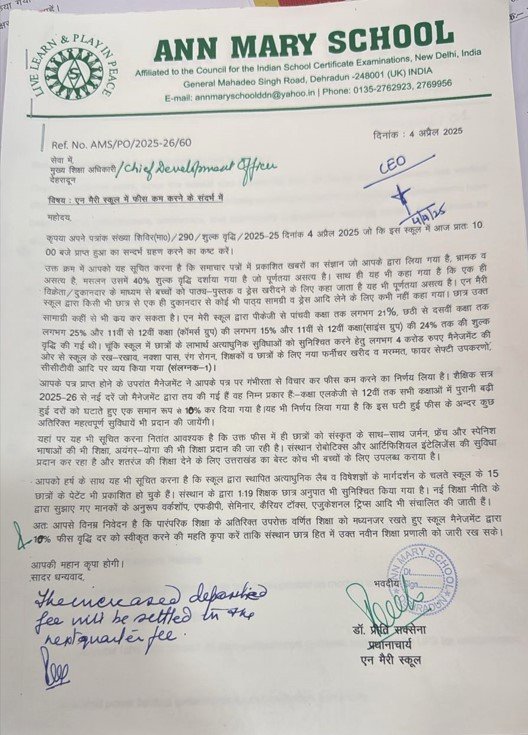 LIVE LEARN & PLAY IN PEACE
ANN MARY SCHOOL
Affiliated to the Council for the Indian School Certificate Examinations, New Delhi, India
General Mahadeo Singh Road, Dehradun -248001 (UK) INDIA
E-mail: annmaryschoolddn@yahoo.in | Phone: 0135-2762923, 2769956
Ref. No. AMS/PO/2025-26/60
दिनांक : 4 अप्रैल 2025
सेवा में,
मुख्य शिक्षा अधिकारी/Chief Development Officer
देहरादून
CEO
4/4/25
विषय : एन मैरी स्कूल में फीस कम करने के संदर्भ में
महोदय,
कृपया अपने पत्रांक संख्या शिविर(मा0)/290/शुल्क वृद्धि/2025-25 दिनांक 4 अप्रैल 2025 जो कि इस स्कूल में आज प्रातः 10
00 बजे प्राप्त हुआ का सन्दर्भ ग्रहण करने का कष्ट करें।
उक्त क्रम में आपको यह सूचित करना है कि समाचार पत्रों में प्रकाशित खबरों का संज्ञान जो आपके द्वारा लिया गया है, भ्रामक व
असत्य है, मसलन उसमें 40% शुल्क वृद्धि दर्शाया गया है जो पूर्णतया असत्य है। साथ ही यह भी कहा गया है कि एक ही
विक्रेता/दुकानदार के माध्यम से बच्चों को पाठ्य-पुस्तक व ड्रेस खरीदने के लिए कहा जाता है यह भी पूर्णतया असत्य है। एन मैरी
स्कूल द्वारा किसी भी छात्र से एक ही दुकानदार से कोई भी पाठ्य सामग्री व ड्रेस आदि लेने के लिए कभी नहीं कहा गया। छात्र उक्त
सामाग्री कहीं से भी कय कर सकता है। एन मैरी स्कूल द्वारा पीकेजी से पांचवी कक्षा तक लगभग 21%, छठी से दसवीं कक्षा तक
लगभग 25% और 11वीं से 12वीं कक्षा (कॉमर्स ग्रुप) की लगभग 15% और 11वीं से 12वीं कक्षा(साइंस ग्रुप) की 24% तक की शुल्क
वृद्धि की गई थी। चूंकि स्कूल में छात्रों के लाभार्थ अत्याधुनिक सुविधाओं को सुनिश्चित करने हेतु लगभग 4 करोड रुपए मैनेजमेंट की
ओर से स्कूल के रख-रखाव, नक्शा पास, रंग रोगन, शिक्षकों व छात्रों के लिए नया फर्नीचर खरीद व मरम्मत, फायर सेफ्टी उपकरणों,
सीसीटीवी आदि पर व्यय किया गया (संलग्नक-1)।
आपके पत्र प्राप्त होने के उपरांत मैनेजमेंट ने आपके पत्र पर गंभीरता से विचार कर फीस कम करने का निर्णय लिया है। शैक्षिक सत्र
2025-26 से नई दरें जो मैनेजमेंट द्वारा तय की गई है वह निम्न प्रकार है:-कक्षा एलकेजी से 12वीं तक सभी कक्षाओं में पुरानी बढ़ी
हुई दरों को घटाते हुए एक समान रूप से 10% कर दिया गया है।यह भी निर्णय लिया गया है कि इस घटी हुई फीस के अन्दर कुछ
अतिरिक्त महत्वपूर्ण सुविधायें भी प्रदान की जायेंगी।
यहां पर यह भी सूचित करना नितांत आवश्यक है कि उक्त फीस में ही छात्रों को संस्कृत के साथ-साथ जर्मन, फ्रेंच और स्पेनिश
भाषाओं की भी शिक्षा, अयंगर-योगा की भी शिक्षा प्रदान की जा रही है। संस्थान रोबोटिक्स और आर्टिफिशियल इंटेलिजेंस की सुविधा
प्रदान कर रहा है और शतरंज की शिक्षा देने के लिए उत्तराखंड का बेस्ट कोच भी बच्चों के लिए उपलब्ध कराया है।
आपको हर्ष के साथ यह भी सूचित करना है कि स्कूल द्वारा स्थापित अत्याधुनिक लैब व विषेशज्ञों के मार्गदर्शन के चलते स्कूल के 15
छात्रों के पेटेंट भी प्रकाशित हो चुके हैं। संस्थान के द्वारा 1:19 शिक्षक छात्र अनुपात भी सुनिश्चित किया गया है। नई शिक्षा नीति के
द्वारा सुझाए गए मानकों के अनुरूप वर्कशॉप, एफडीपी, सेमिनार, कैरियर टॉक्स, एजुकेशनल ट्रिप्स आदि भी संचालित की जाती हैं।
अतः आपसे विनम्र निवेदन है कि पारंपरिक शिक्षा के अतिरिक्त उपरोक्त वर्णित शिक्षा को मध्यनजर रखते हुए स्कूल मैनेजमेंट द्वारा
10% फीस वृद्धि दर को स्वीकृत करने की महति कृपा करें ताकि संस्थान छात्र हित में उक्त नवीन शिक्षा प्रणाली को जारी रख सके।
आपकी महान कृपा होगी।
सादर धन्यवाद,
The increased deposited
fee will be settled in the
next quarter fee.
ANN MARY SCHOOL
DEHRADUN
भवदीय
डॉ. प्रीति सक्सेना
प्रधानाचार्य
एन मैरी स्कूल